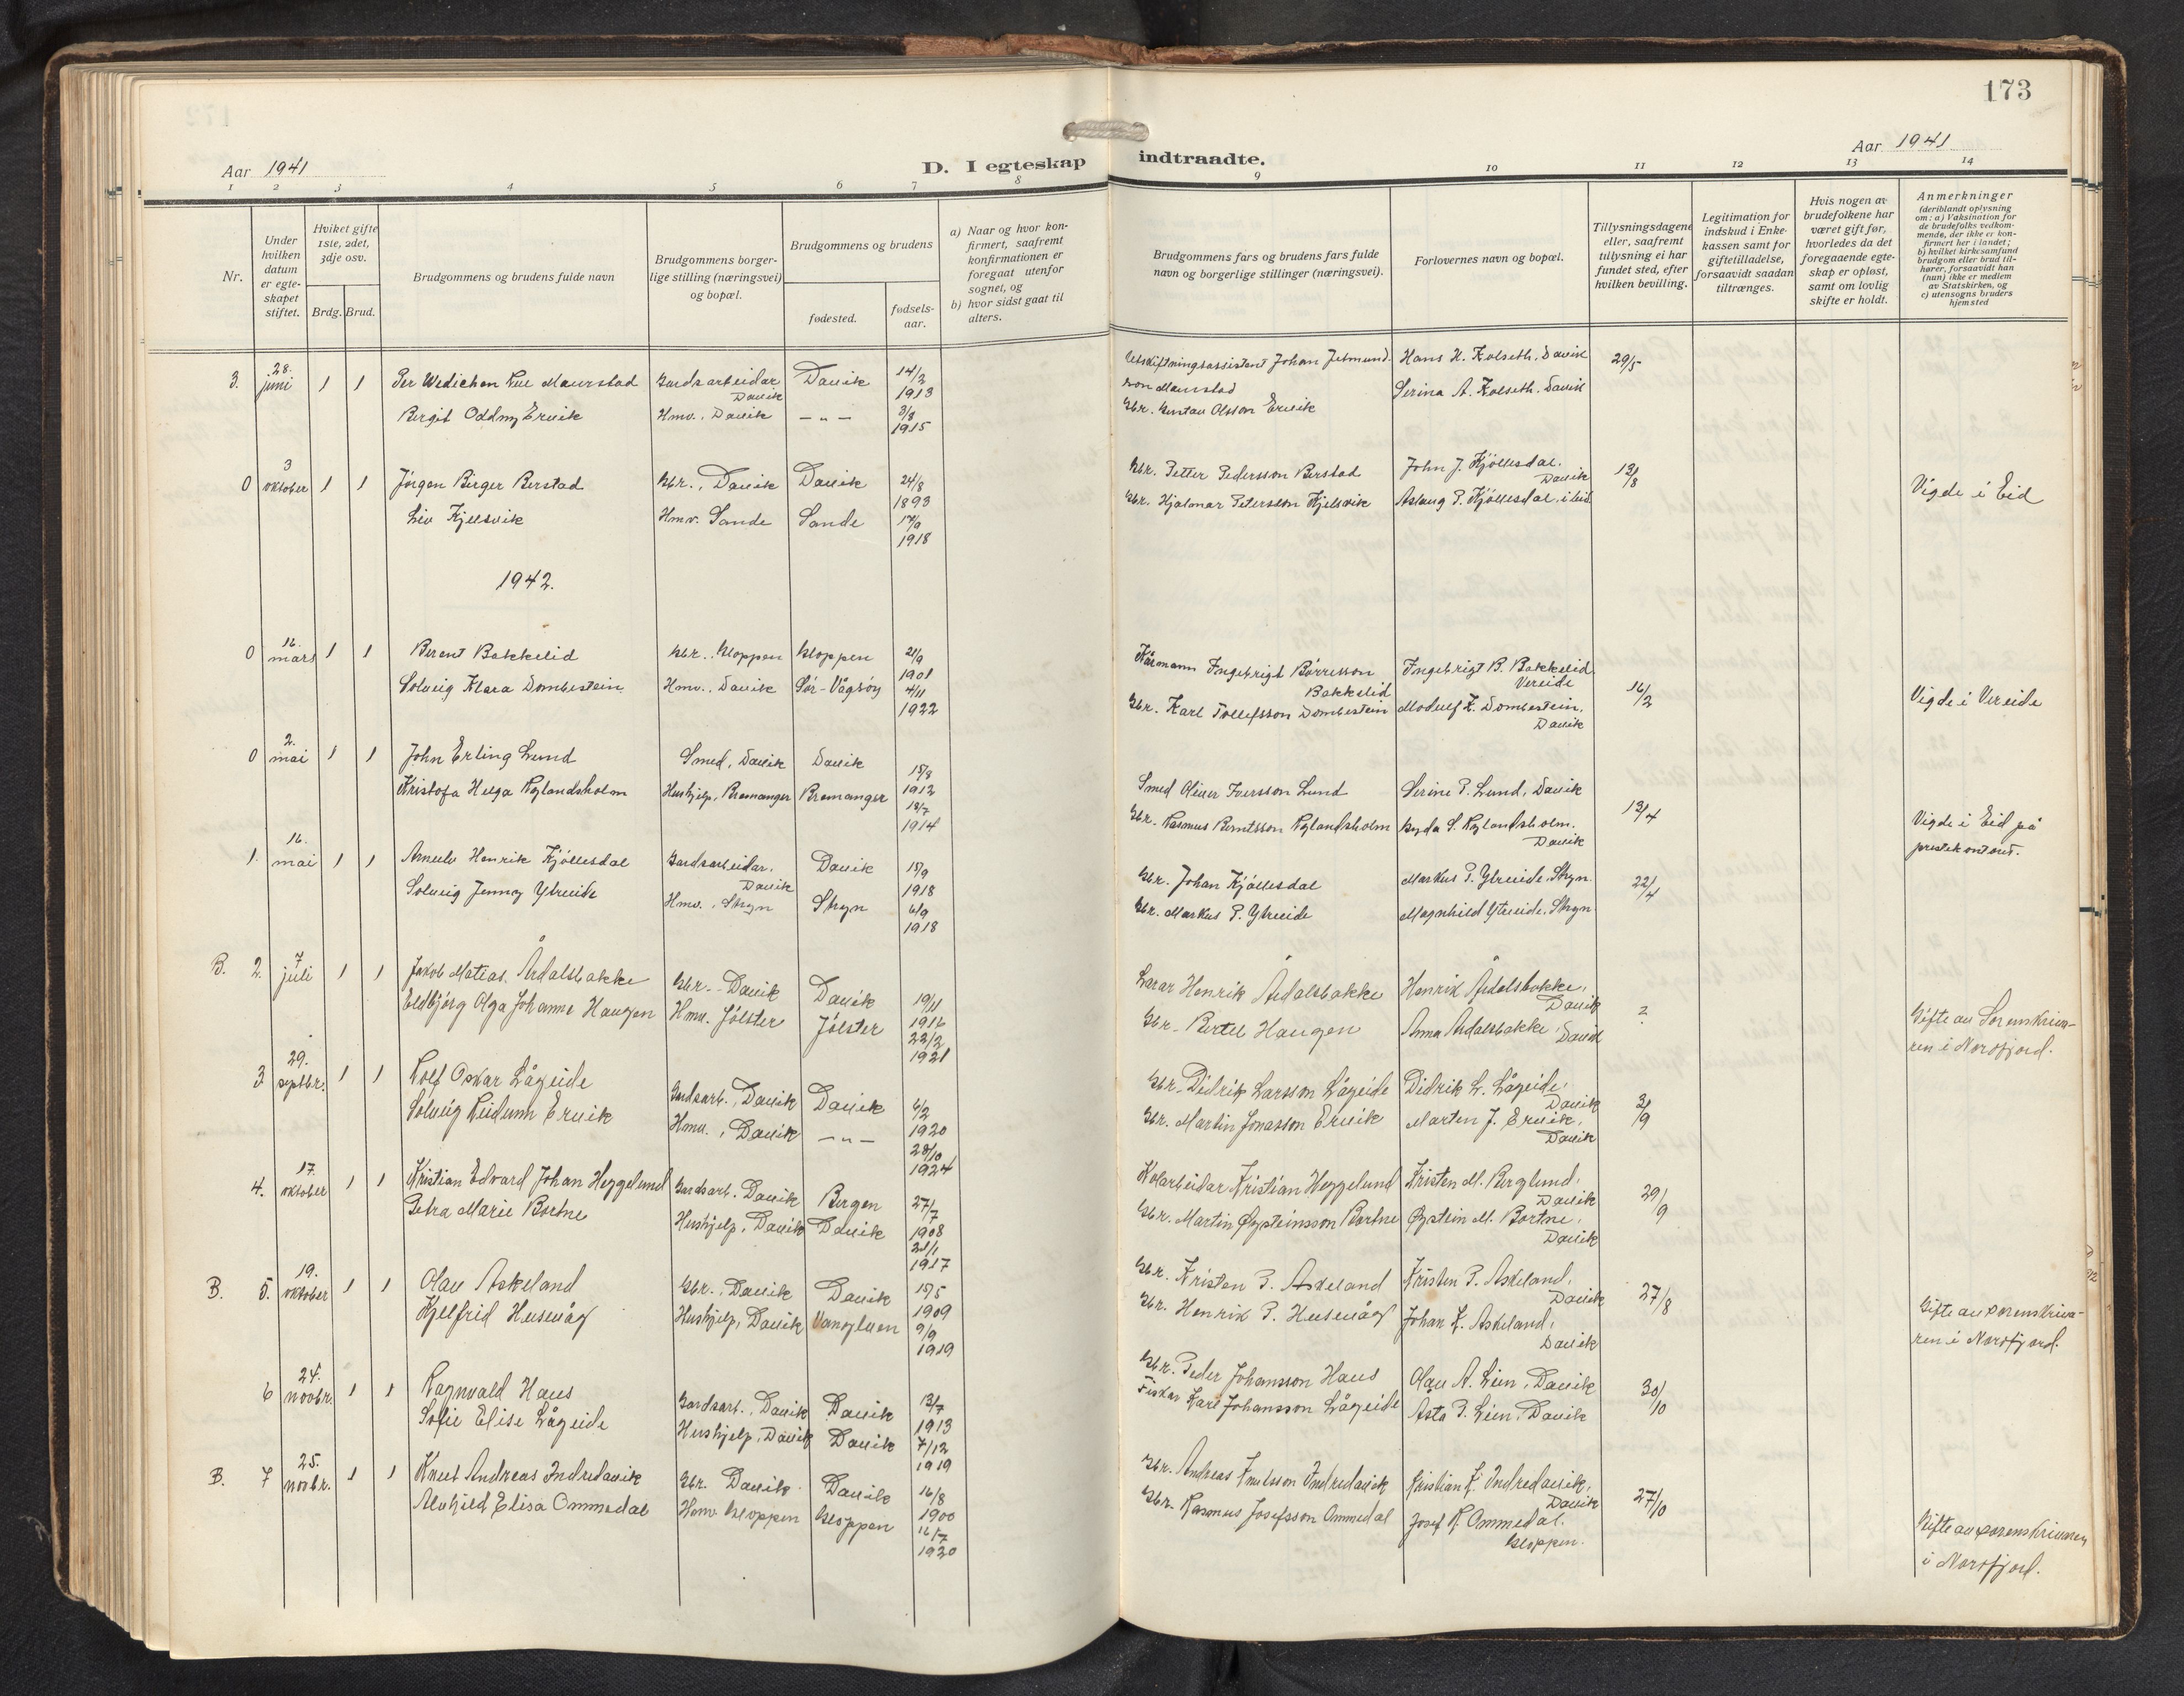 173
Aar 1941
D. I egteskap indtraadte.
Aar 1941
1 2 3 4 5 6 7 8 9 10 11 12 13 14
Nr.
Under hvilken datum er egteskapet stiftet.
Hviket gifte 1ste, 2det, 3dje osv.
Brdg. Brud.
Brudgommens og brudens fulde navn
Brudgommens borgerlige stilling (næringsvei) og bopæl.
Brudgommens og brudens
fødested.
fødsels-aar.
a) Naar og hvor konfirmert, saafremt konfirmationen er foregaat utenfor sognet, og
b) hvor sidst gaat til alters.
Brudgommens fars og brudens fars fulde navn og borgerlige stillinger (næringsvei).
Forlovernes navn og bopæl.
Tillysningsdagene eller, saafremt tillysning ei har fundet sted, efter hvilken bevilling.
Legitimation for indskud i Enkekassen samt for giftetilladelse, forsaavidt saadan tiltrænges.
Hvis nogen av brudefolkene har været gift før, hvorledes da det foregaaende egteskap er opløst, samt om lovlig skifte er holdt.
Anmerkninger (deriblandt oplysning om: a) Vaksination for de brudefolks vedkommende, der ikke er konfirmert her i landet; b) hvilket kirkesamfund brudgom eller brud tilhører, forsaavidt han (hun) ikke er medlem av Statskirken, og c) utensogns bruders hjemsted
3. 28. juni 1 1 Per Wedichen Maurstad Gardsarbeidar Davik Davik 14/2 1913 Johan Maurstad Hans H. Kolseth, Davik 29/5
Birgit Oddny Ervik Hmv., Davik — " — 3/8 1915 Gbr. Gustav Olsson Ervik Serina A. Kolseth, Davik
0 3 oktober 1 1 Jörgen Birger Berstad Gbr., Davik Davik 24/8 1893 Gbr. Petter Pedersson Berstad John J. Kjöllesdal, Davik 13/8 Vigde i Eid
Liv Kjelsvik Hmv. Sande Sande 17/9 1918 Gbr. Hjalmar Petersson Kjelsvik Aslaug P. Kjöllesdal, ibid
1942.
0 16. mars 1 1 Berent Bakkelid Gbr., Gloppen Gloppen 21/9 1901 Kårmann Ingebrigt Börresson Bakkelid Ingebrigt B. Bakkelid Vereide 16/2 Vigde i Vereide
Solveig Klara Dombestein Hmv., Davik Sör-Vågsöy 4/11 1922 Gbr. Karl Tollefsson Dombestein Modulf K. Dombestein, Davik
0 2. mai 1 1 John Erling Lund Smed, Davik Davik 15/8 1912 Smed Oliver Iversson Lund Serine P. Lund, Davik 13/4 Vigde i Eid på prestekontoret.
Kristofa Helga Rylandsholm Hushjelp, Bremanger Bremanger 18/7 1914 Gbr. Rasmus Berntsson Rylandsholm Gyda S. Rylandsholm. Davik
1. 16. mai 1 1 Henrik Kjöllesdal Gardsarbeidar, Davik Davik 15/9 1918 Gbr. Johan Kjöllesdal Markus P. Ytreeide, Stryn. 22/4
Solveig Jenny Ytreeide Hmv., Stryn Stryn 6/9 1918 Gbr. Markus P. Ytreeide Magnhild Ytreeide, Stryn
B. 2. 7 juli 1 1 Jakob Matias Årdalsbakke Gbr. Davik Davik 19/11 1916 Lærar Henrik Årdalsbakke Henrik Årdalsbakke, Davik ? Gifte av Sorenskrivaren i Nordfjord.
Eldbjörg Olga Johanne Haugen Hmv. Jölster Jölster 22/2 1921 Gbr. Bertel Haugen Anna Årdalsbakke, Davik
3 29. septbr. 1 1 Rolf Oskar Lågeide Gardsarb., Davik Davik 6/2 1920 Gbr. Didrik Larsson Lågeide Didrik L. Lågeide, Davik 3/9
Solveig Reidunn Ervik Hmv., Davik — " — 28/10 1924 Gbr. Martin Jonasson Ervik Marten J. Ervik, Davik
4. 17. oktober 1 1 Kristian Edvard Johan Heggelund Gardsarb. Davik Bergen 27/7 1908 Kolarbeidar Kristian Heggelund Kristen M. Berglund, Davik 29/9
Petra Marie Bortne Hushjelp, Davik Davik 21/1 1917 Gbr. Martin Øysteinsson Bortne Øystein M. Bortne, Davik
B. 5. 19. oktober 1 1 Olav Askeland Gbr., Davik Davik 15/5 1909 Gbr. Kristen P. Askeland Kristen P. Askeland, Davik 27/8 Gifte av sorenskrivaren i Nordfjord.
Kjelfrid Husevåg Hushjelp, Davik Vanylven 9/9 1919 Gbr. Henrik P. Husevåg Johan K. Askeland, Davik
6 24. novbr. 1 1 Ragnvald Haus Gardsarb., Davik Davik 13/7 1913 Gbr. Peder Johansson Haus Olav A. Lien, Davik 30/10
Sofie Elise Lågeide Hushjelp, Davik Davik 7/12 1919 Fiskar Karl Johansson Lågeide Asta P. Lien, Davik
B. 7 25. novbr. 1 1 Knut Andreas Indredavik Gbr. Davik Davik 16/8 1900 Gbr. Andreas Knutsson Indredavik Kristian K. Indredavik, Davik 27/10 Gifte av sorenskrivaren i Nordfjord.
Alvhild Elisa Ommedal Hmv. Gloppen Gloppen 16/7 1920 Gbr. Rasmus Josefsson Ommedal Josef R. Ommedal. Gloppen.